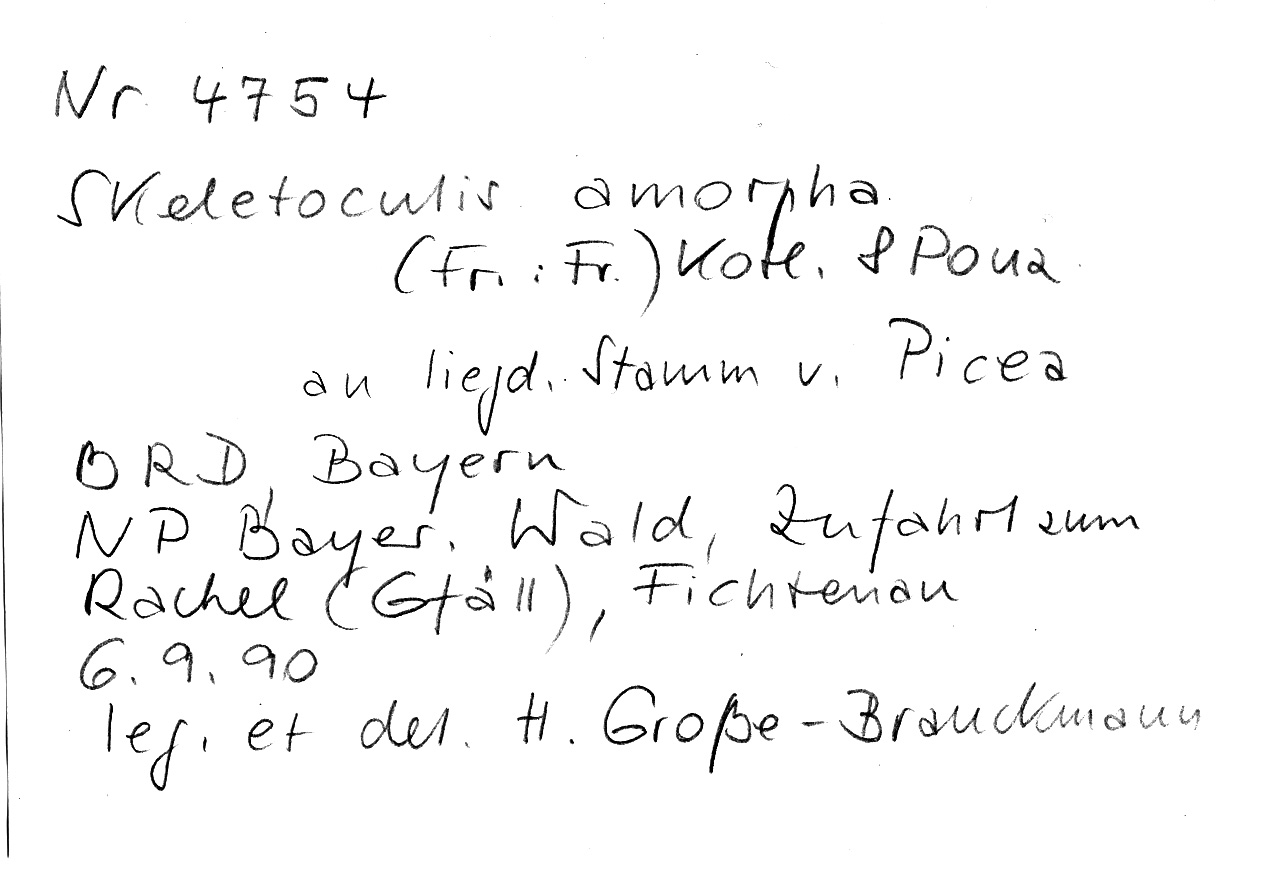 Nr. 4754
Skeletocutis amorpha
(Fr. : Fr.) Kotl. & Pouz
an liegd. Stamm v. Picea
BRD, Bayern
NP Bayer. Wald, Zufahrt zum
Rachel (Gfäll), Fichtenau
6. 9. 90
leg. et det. H. Große-Brauckmann